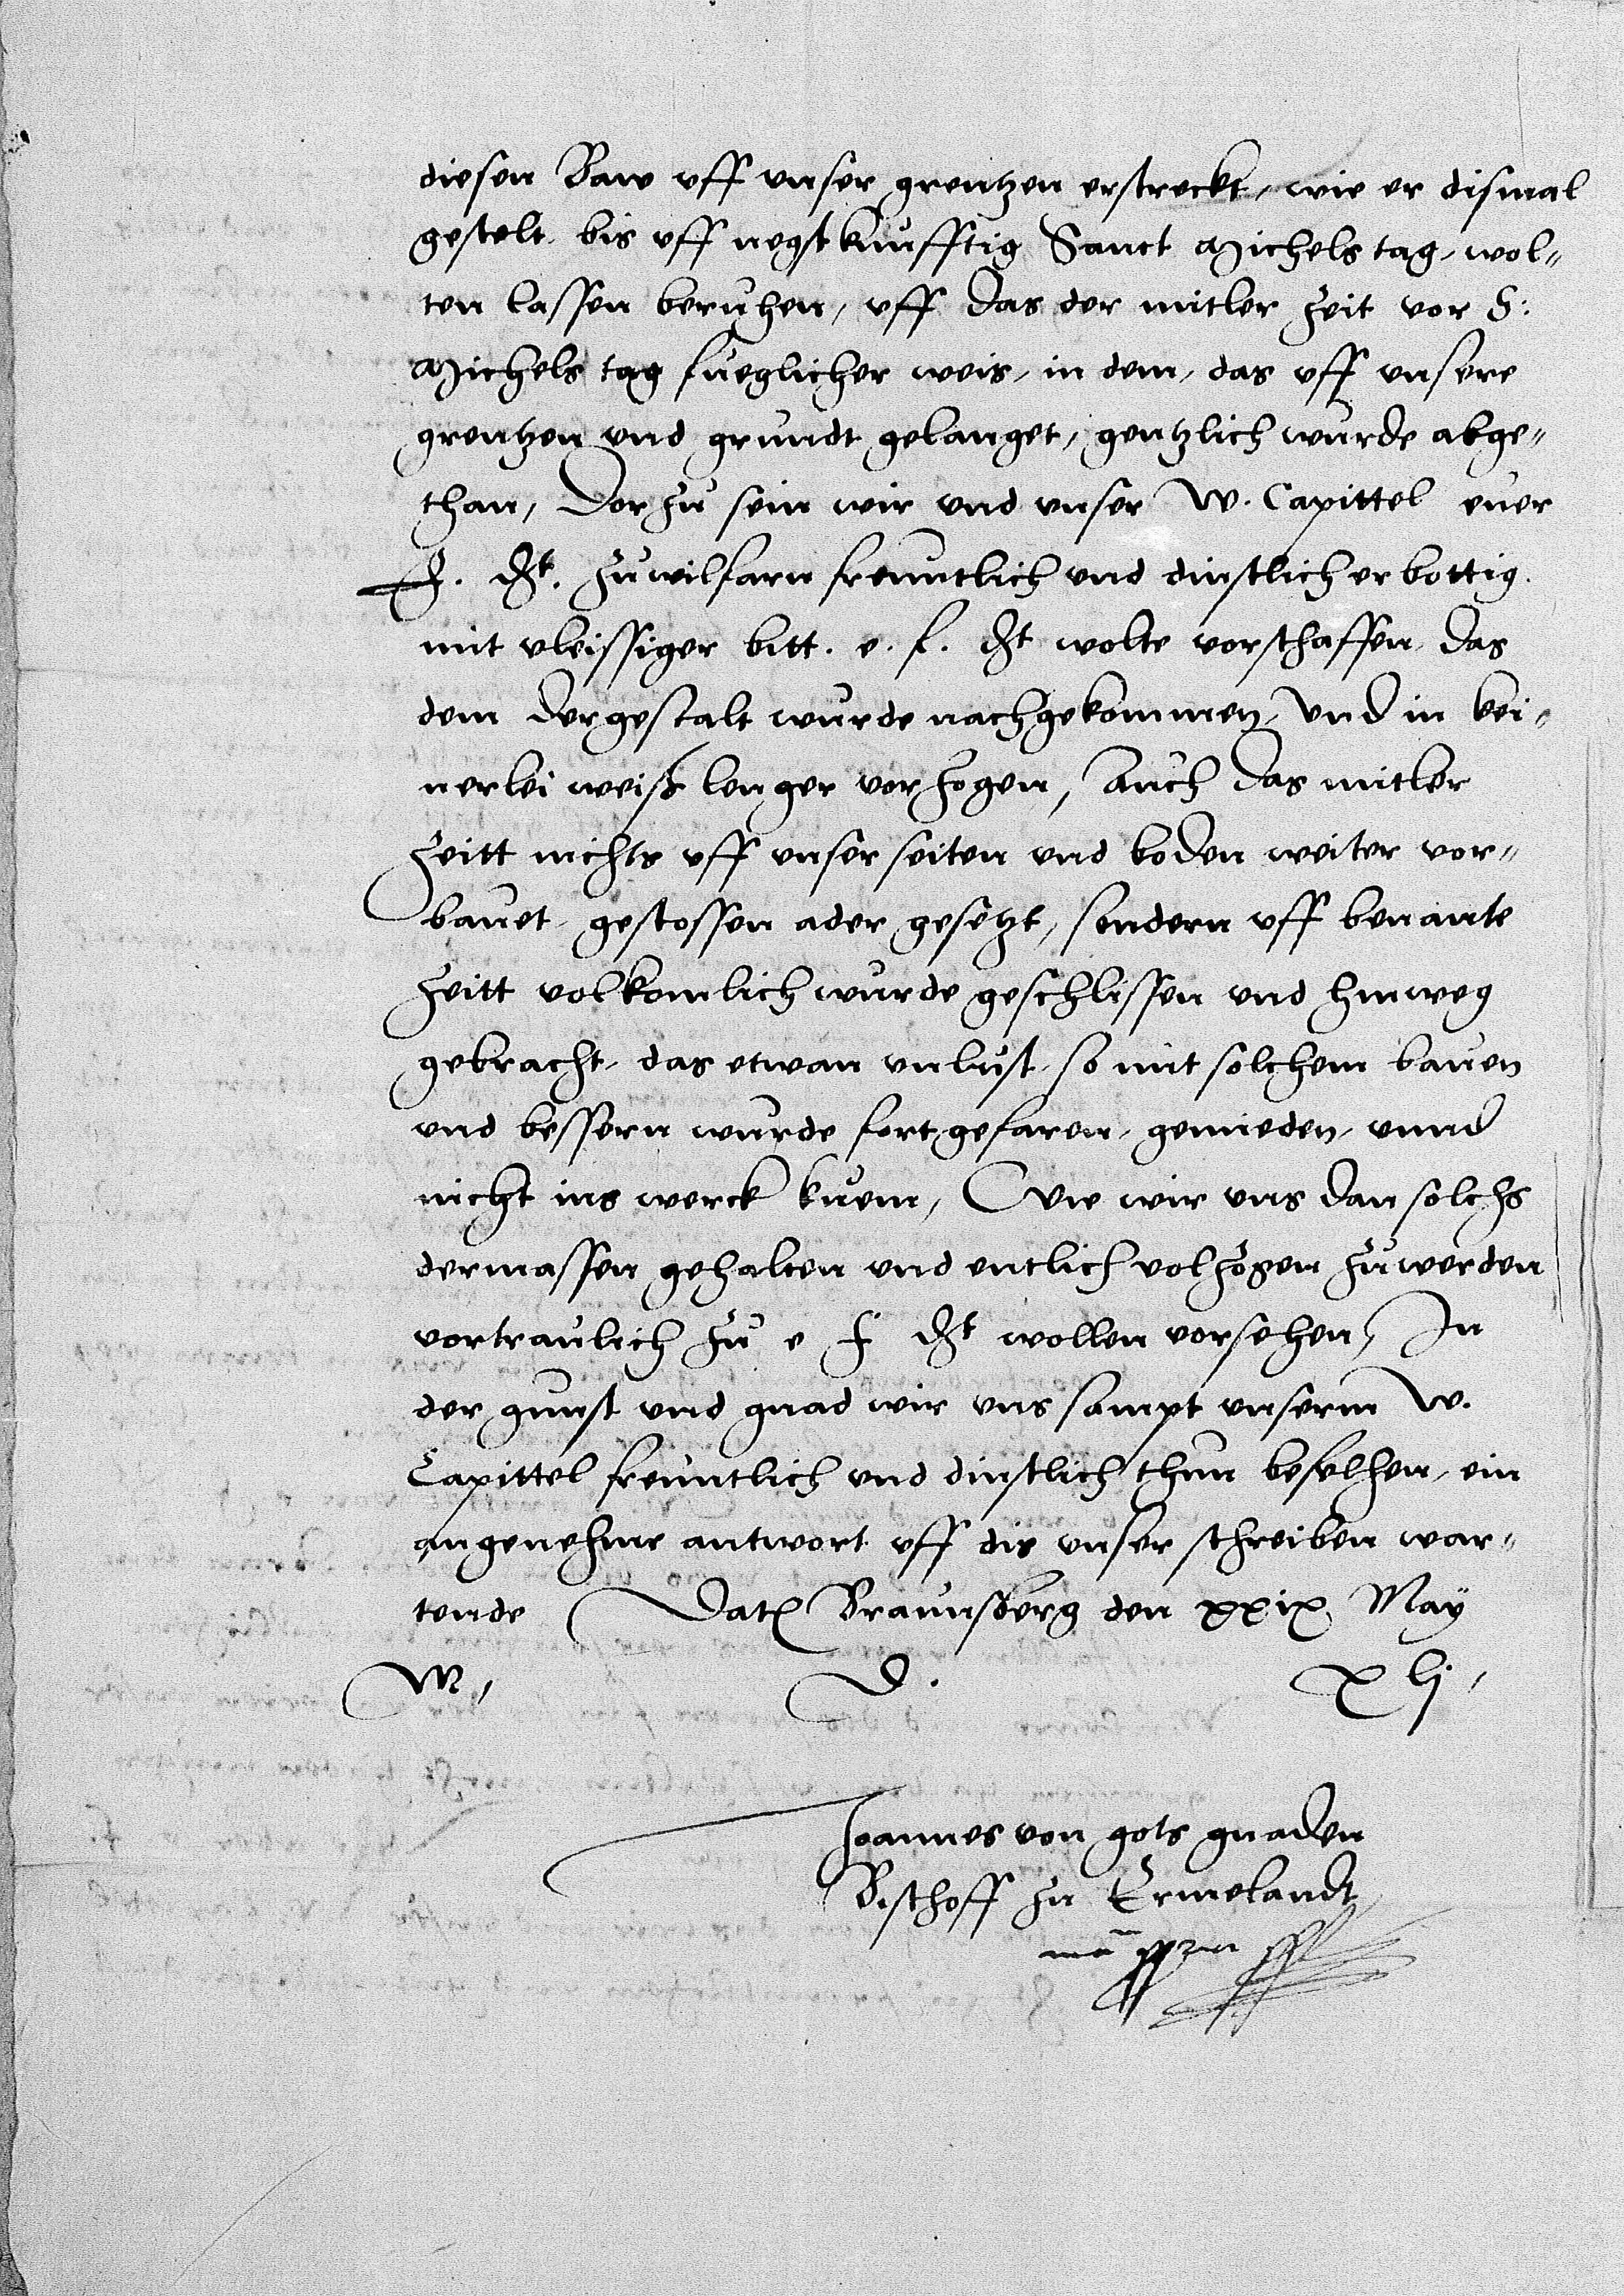 diesen Baw uff unser grentzen erstreckt, wie er dismal
gestelt, bis uff negstkunfftig Sanct Michels tag, wol„
ten lassen beruhen, uff das der mitler zeit vor S:
Michels tag fueglicher weis, in dem, das uff unsere
grentzen und grundt gelanget, gentzlich wurde abge„
than, Dorzu sein wir und unser W. Capittel euer
F. Dt. zuwilfarn freuntlich und dinstlich erbottig.
mit vleissiger bitt. e. f. Dt wolte vorschaffen, das
dem dergestalt wurde nachgekommen, und in kei„
nerlei weiß lenger vorzogen, Auch das mitler
Zeitt nichts uff unser seiten und boden weiter vor„
bauet, gestossen ader gesetzt, sondern uff benante
Zeitt volkomlich wurde geschlissen und hinweg
gebracht, das etwan unlust, so mit solchem bauen
und bessern wurde fortgefaren, gemieden, unnd
nicht ins werck kuem, Wie wir uns dan solchs
dermassen gehalten und entlich volzogen zuwerden
vortraulich zu e f Dt wollen vorsehen, In
der gunst und gnad wir uns sampt unserm W.
Capittel freuntlich und dinstlich thun befelhen, ein
angenehme antwort uff dis unser schreiben war„
tende Dat Braunsberg den xxix May
M, D. xlj,
Joannes von gots gnaden
Bischoff zu Ermelandt